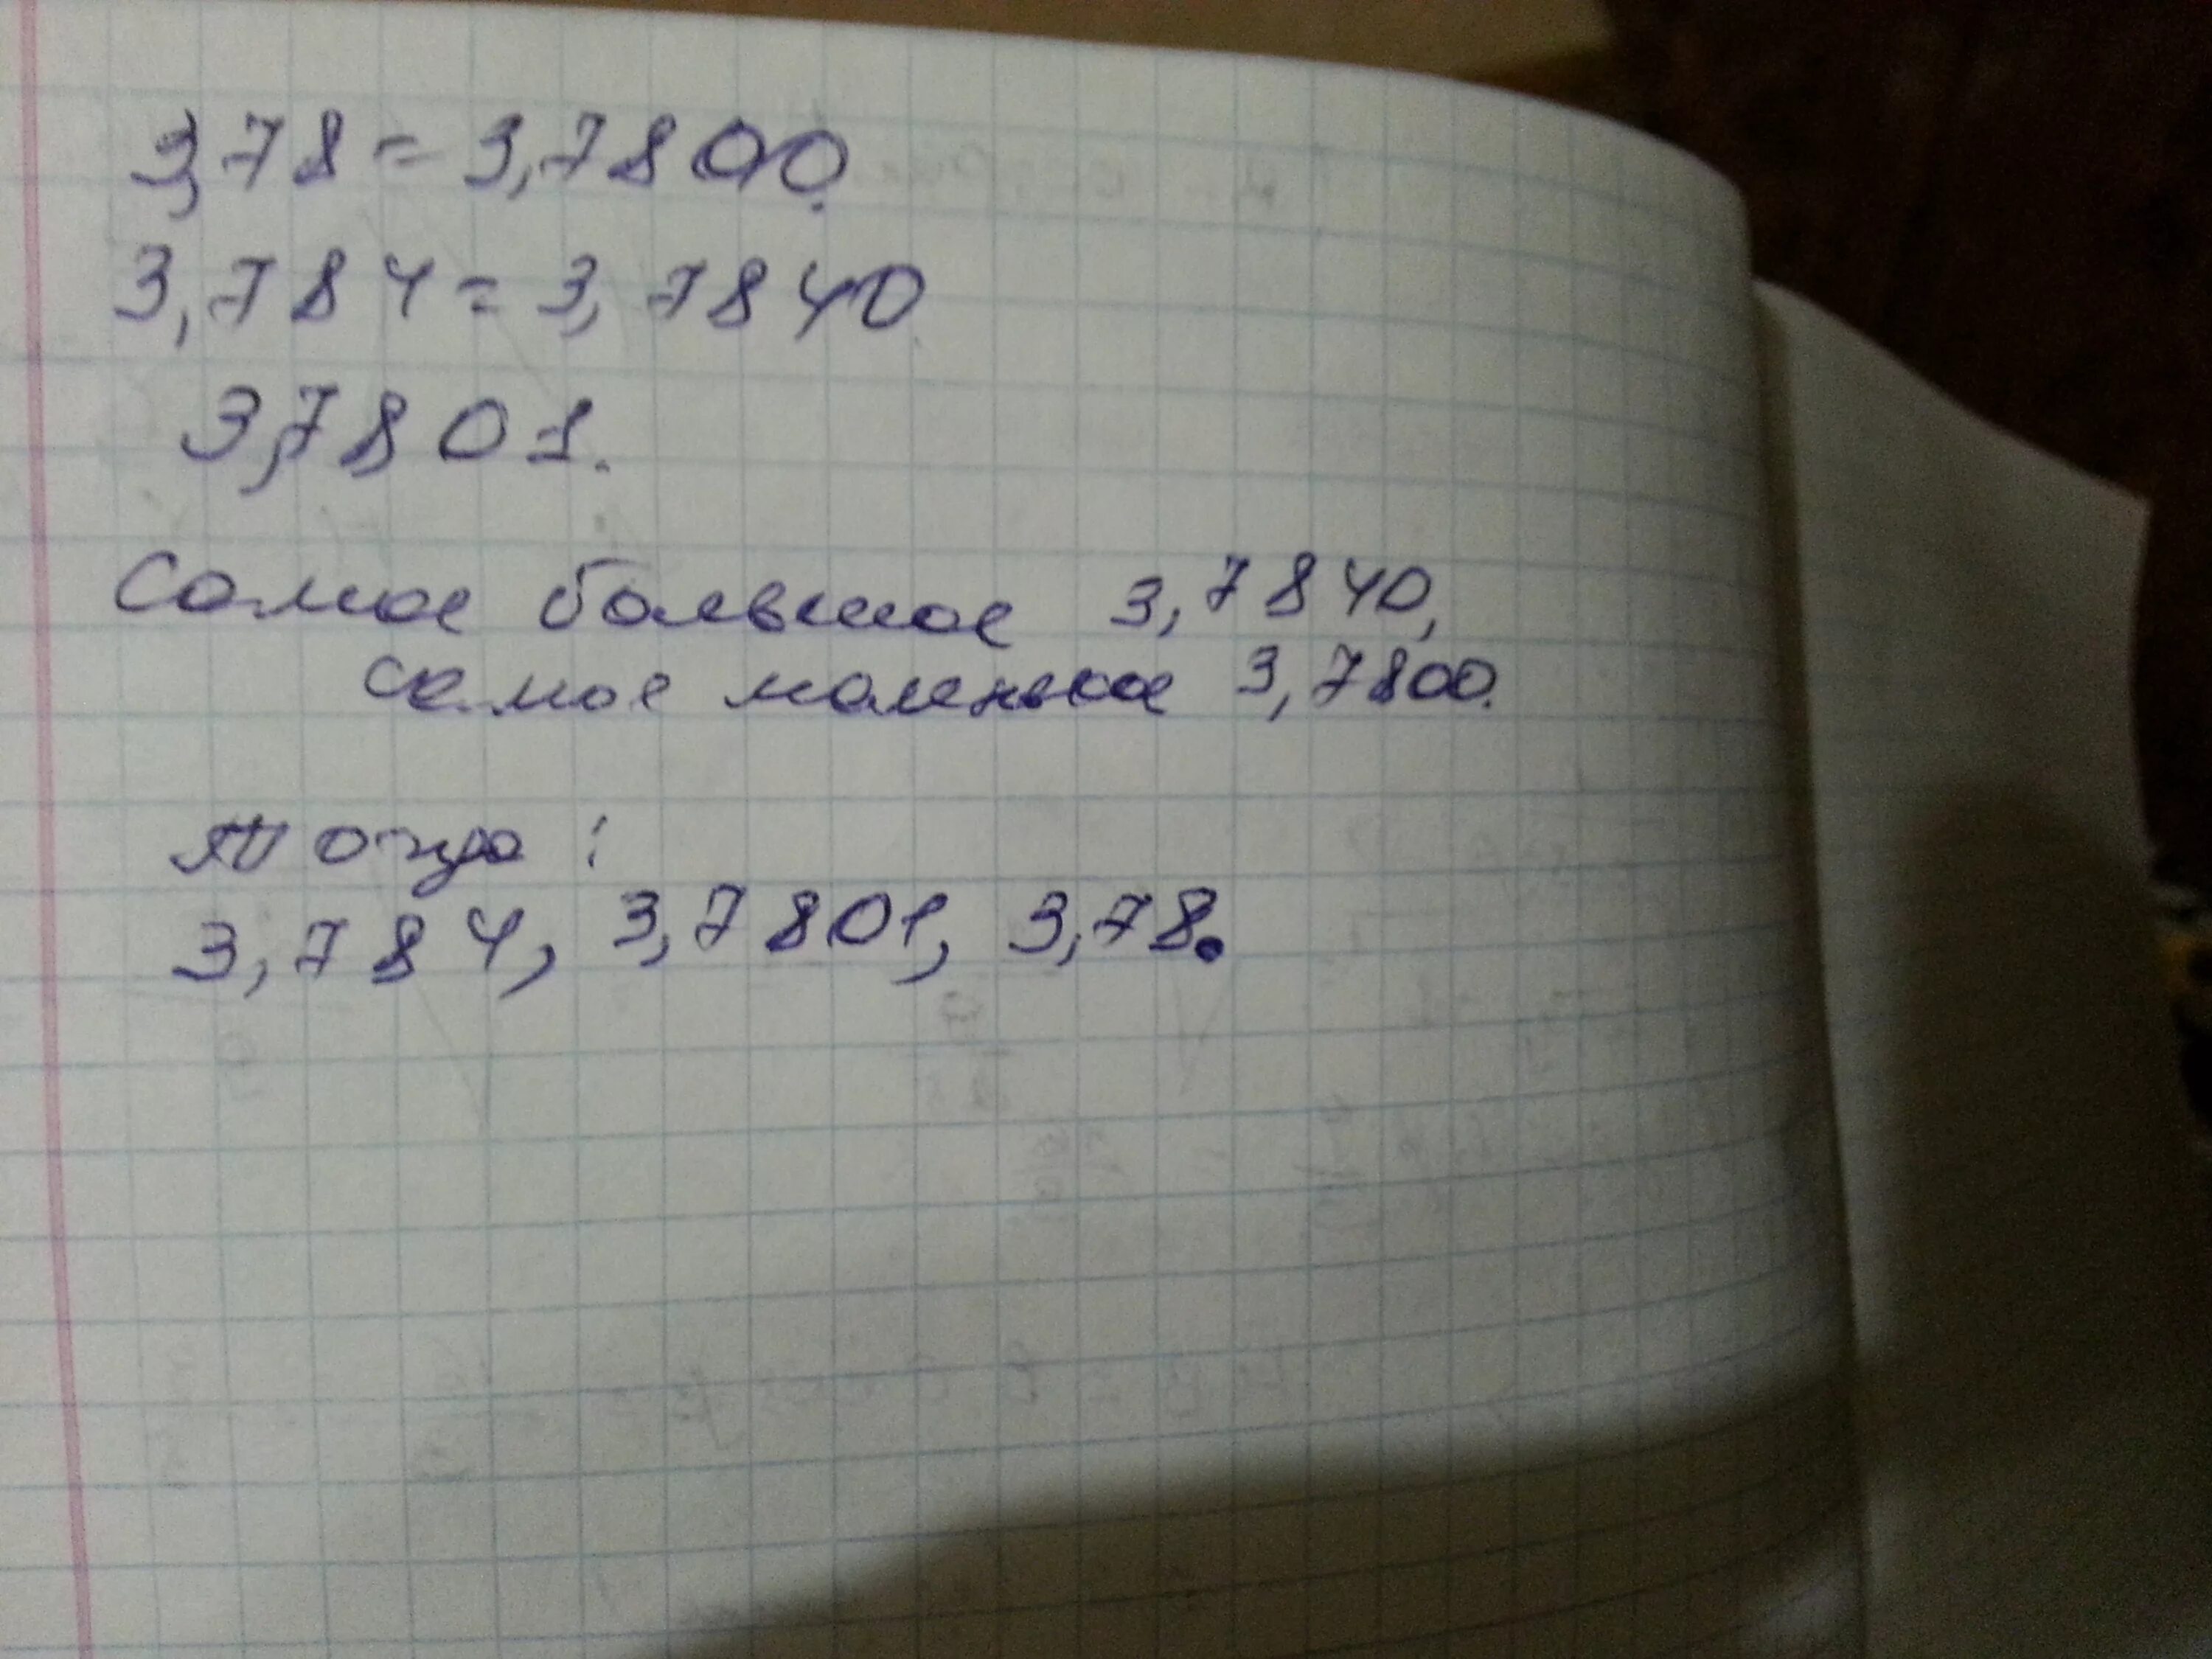 3,78 = 3,7800.
3,784 = 3,7840
3,7801.
Самое большое 3,7840,
самое маленькое 3,7800.
Тогда:
3,784, 3,7801, 3,78.